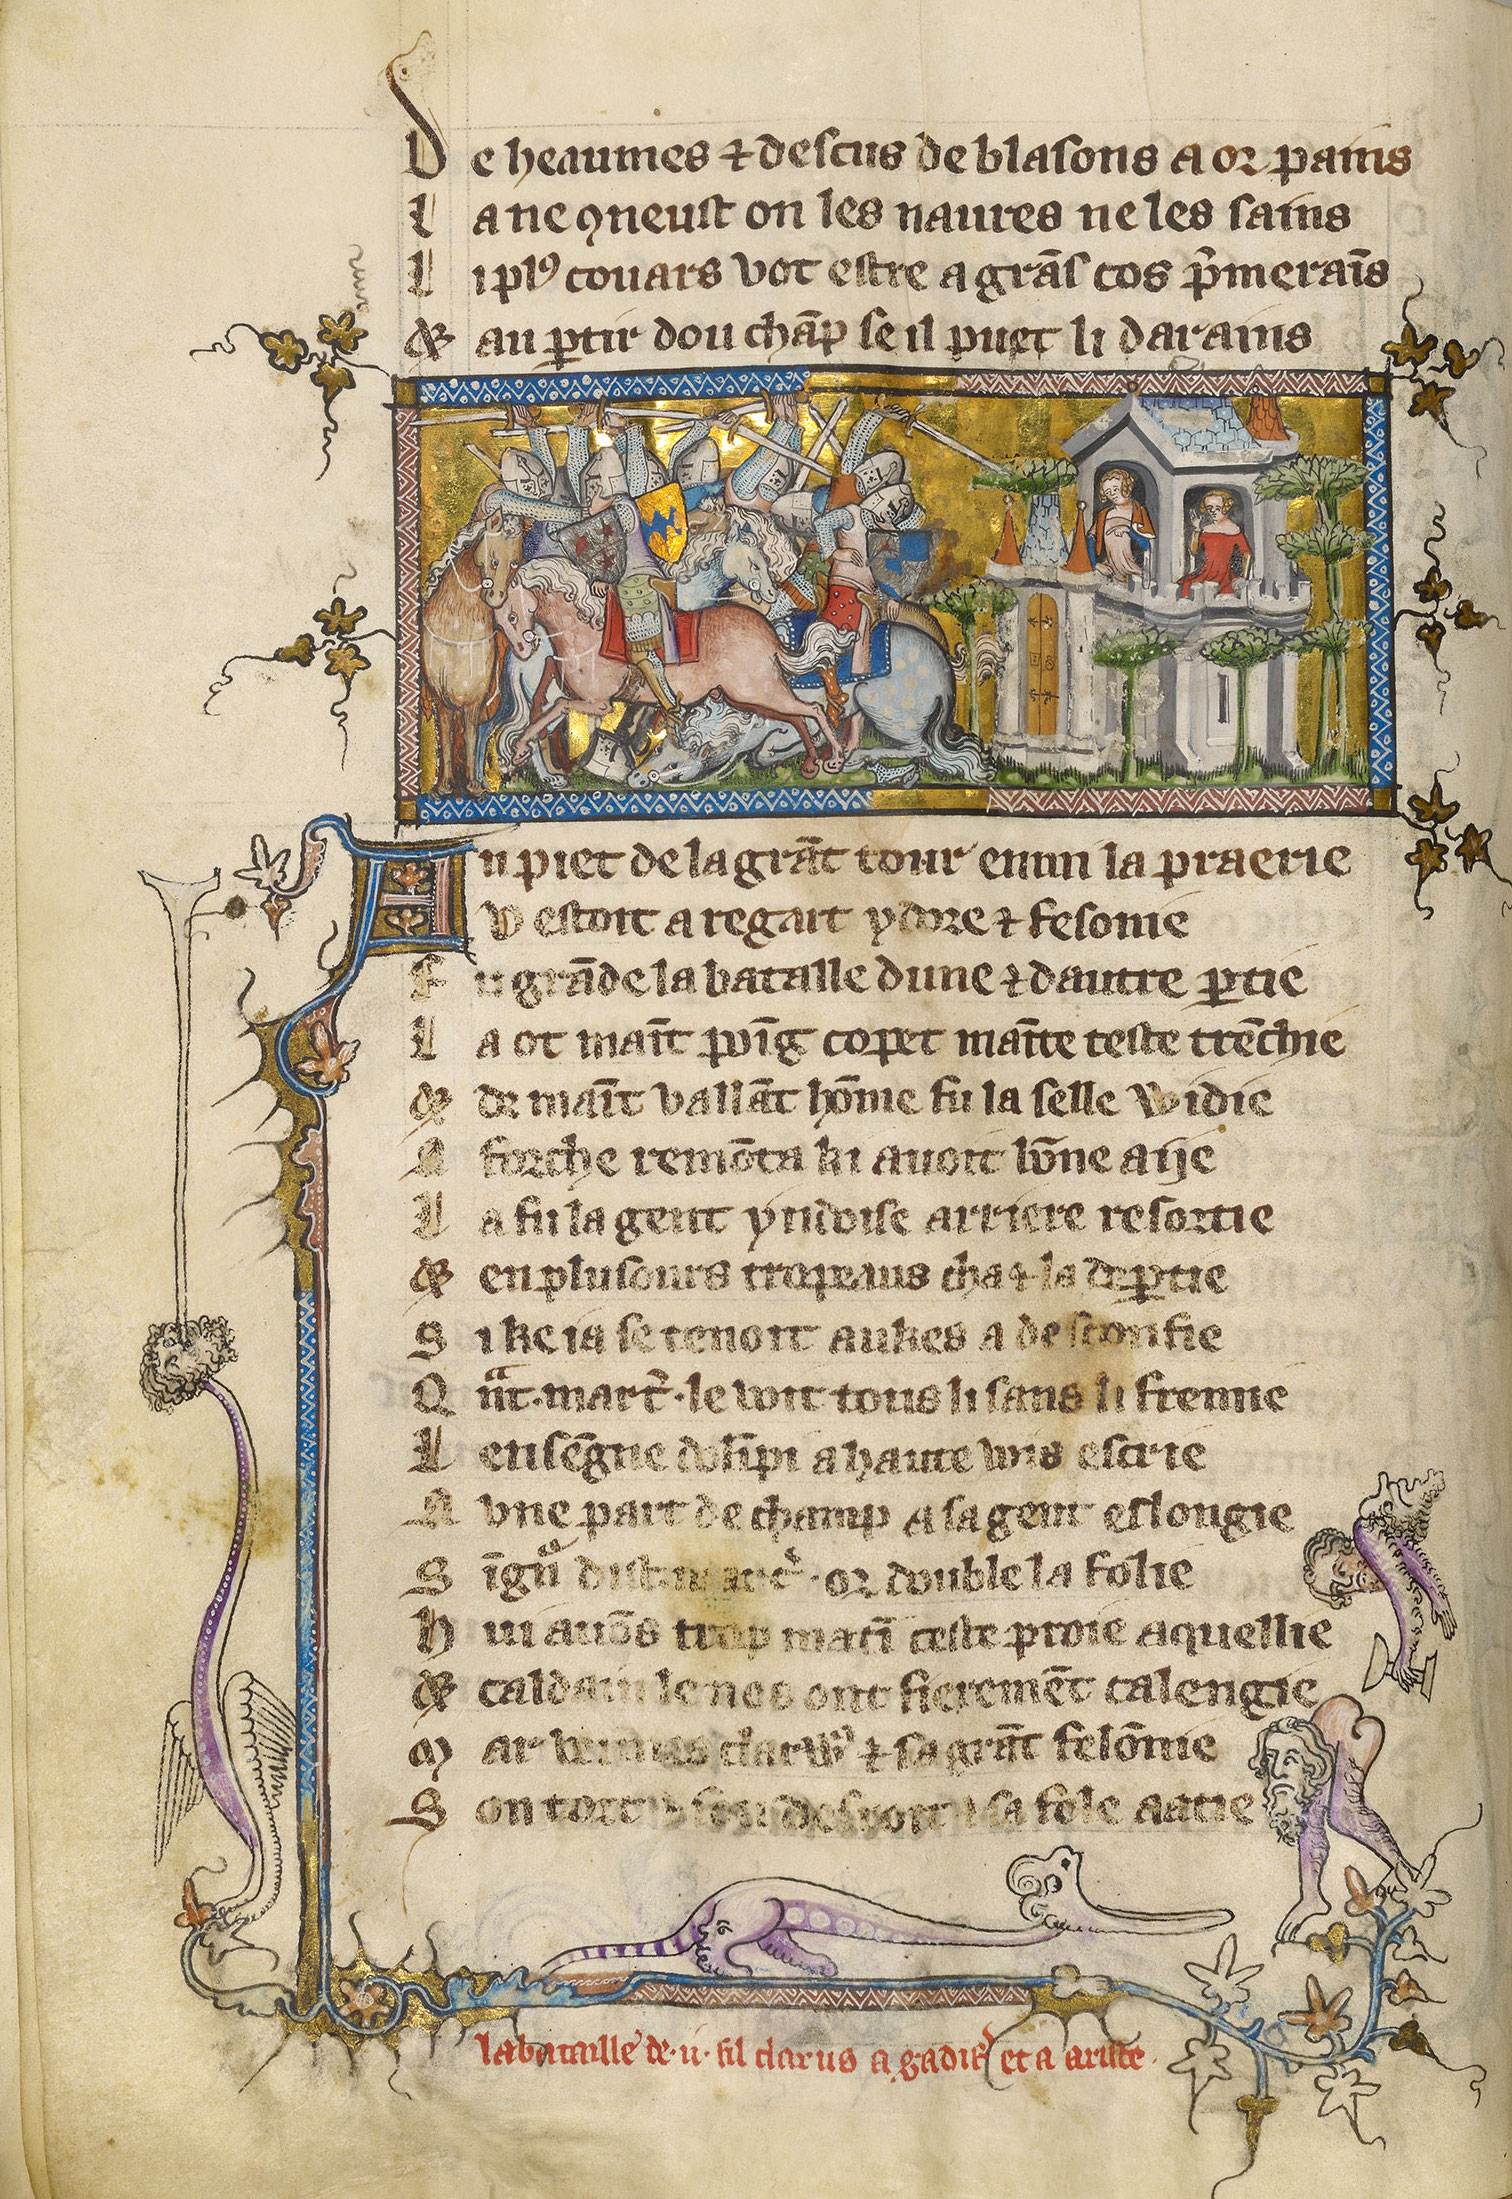 De heaumes ⁊ descus de blasons a or pains
La ne ꝯneust on les naures ne les sains
Li plꝰ couars vot estre a grãs cos p̃meraĩs
Et au ꝑtir dou chãp se il puet li darains
Au piet de la grãt tour enmi la praerie
V estoit a regart ydore ⁊ fesonie
Fu grãde la batalle dune ⁊ dautre ꝑtie
La ot maĩt poĩg copet maĩte teste trẽchie
Et de maĩt vallãt hõme fu la selle widie
A forche remõta ki auoit bõne aije
La fu la gent yndoise arriere resortie
Et en plusours tropeaus la deꝑtie
Si ke ia se tenoit aukes a desconfie
Qnͣt . marc̾ . le voit tous li sans li fremie
Lensẽgne a haute vois escrie
A vne part de champ a sa gent eslongie
Sĩgnͬ dist marc̾ . or double la folie
Hui auõs trop matĩ ceste proie aquellie
Et caldain le nos ont fieremẽt calengie
Mar ⁊ sa grãt felõnie
Son tort sa fole aatie
la bataille de .ii. fil clarus a gadif̾ et a ariste .